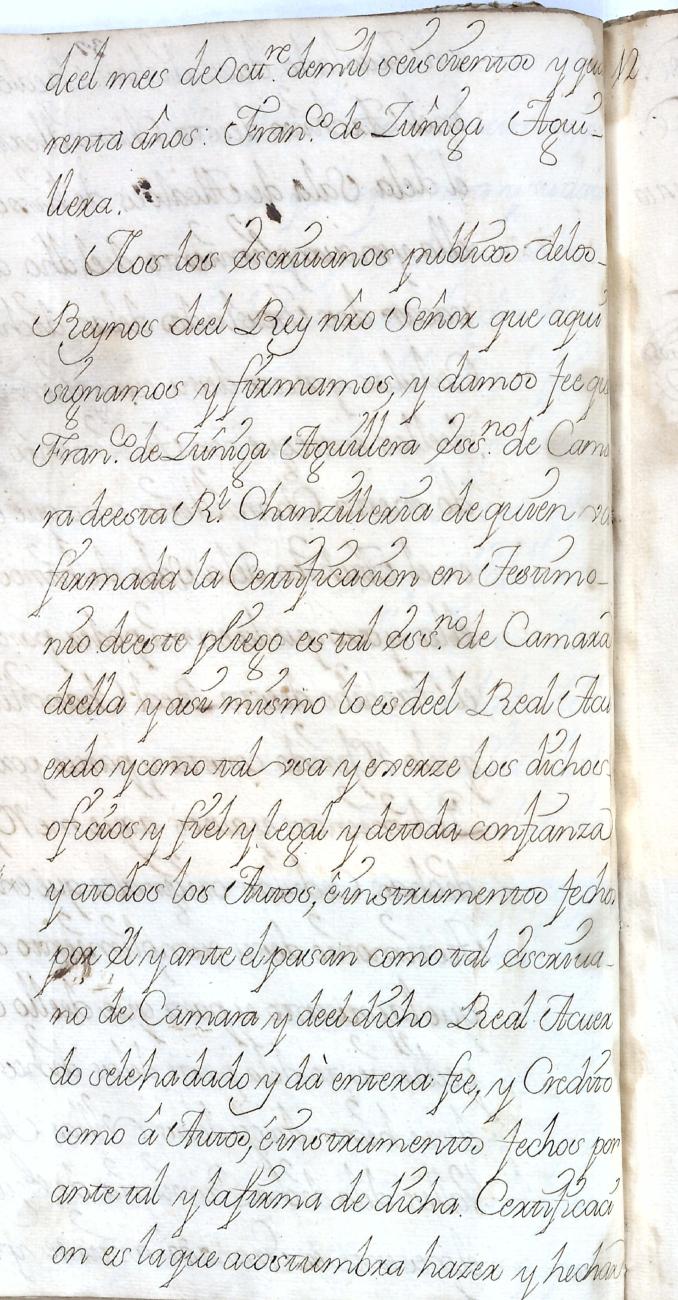 deel mes de Octu.re demil seiscientos y qua
renta años: Fran.co de Zuñiga Agui-
llera.
Nos los escriuanos publicos delos
Reynos deel Rey nr̃o Señor que aqui
signamos y firmamos, y damos fee qu
Fran.co de Zuñiga Aguillera ess.no de Cama
ra deesta R.l Chanzilleria de quien va
firmada la Certificacion en Testimo-
nio deeste pliego es tal ess.no de Camara
deella y asi mismo lo es deel Real Acu
erdo y como tal vsa y exerze los dichos
oficios y fiel y legal y detoda confianza
y atodos los Autos, ê instrumentos fechos
por êl y ante el pasan como tal escriua-
no de Camara y deel dicho Real Acuer
do sele ha dado y dà entera fee, y Credito
como â Autos, é instrumentos fechos por
ante tal y la firma de dicha Certificaci
on es la que acostumbra hazer y hechar
12